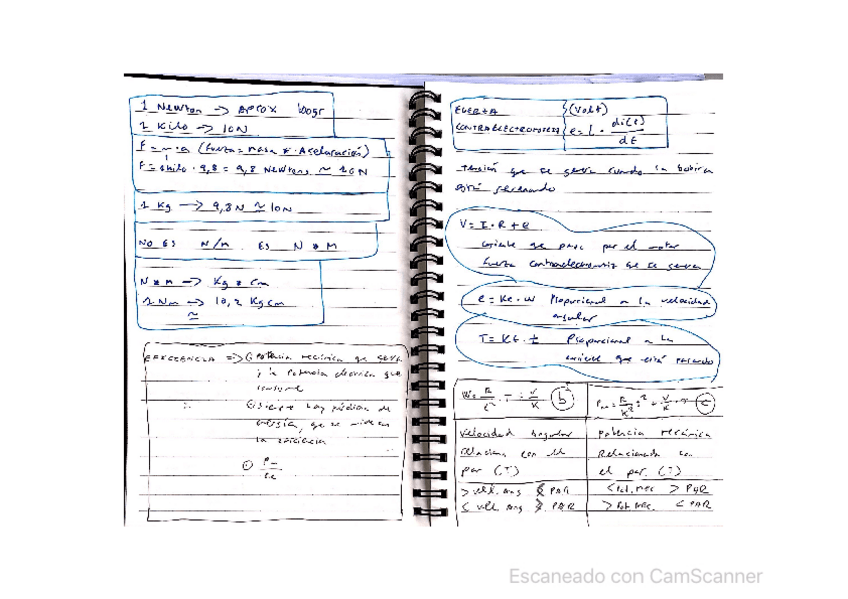 1 Newton -> APROX 100gr
1 Kilo -> 10N
F = m·a (Fuerza = masa * Aceleración)
F = 1kilo · 9,8 = 9,8 Newtons ≈ 10N
1 Kg -> 9,8N ≈ 10N
NO ES N/m ES N * M
N * m -> Kg * cm
1 Nm -> 10,2 Kgcm
≈
EFICIENCIA => Potencia mecánica que
y la potencia eléctrica que
consume
Siempre hay pérdidas de
energía, que se miden
la eficiencia
Pm
Pe
FUERZA (Volt)
CONTRAELECTROMOTRIZ e = L · di(t)
dt
Tensión que se genera cuando la bobina
está generando
V = I · R + e
corriente que pasa por el motor
fuerza contraelectromotriz que se genera
e = Ke · w Proporcional a la velocidad
angular
T = Kt · i Proporcional a la
corriente que está pasando
Velocidad angular
relaciona con el
par (T)
> vel. ang PAR
< vel. ang PAR
Potencia mecánica
Relacionada con
el par. (T)
< Pot. mec > PAR
> Pot mec. < PAR
Escaneado con CamScanner